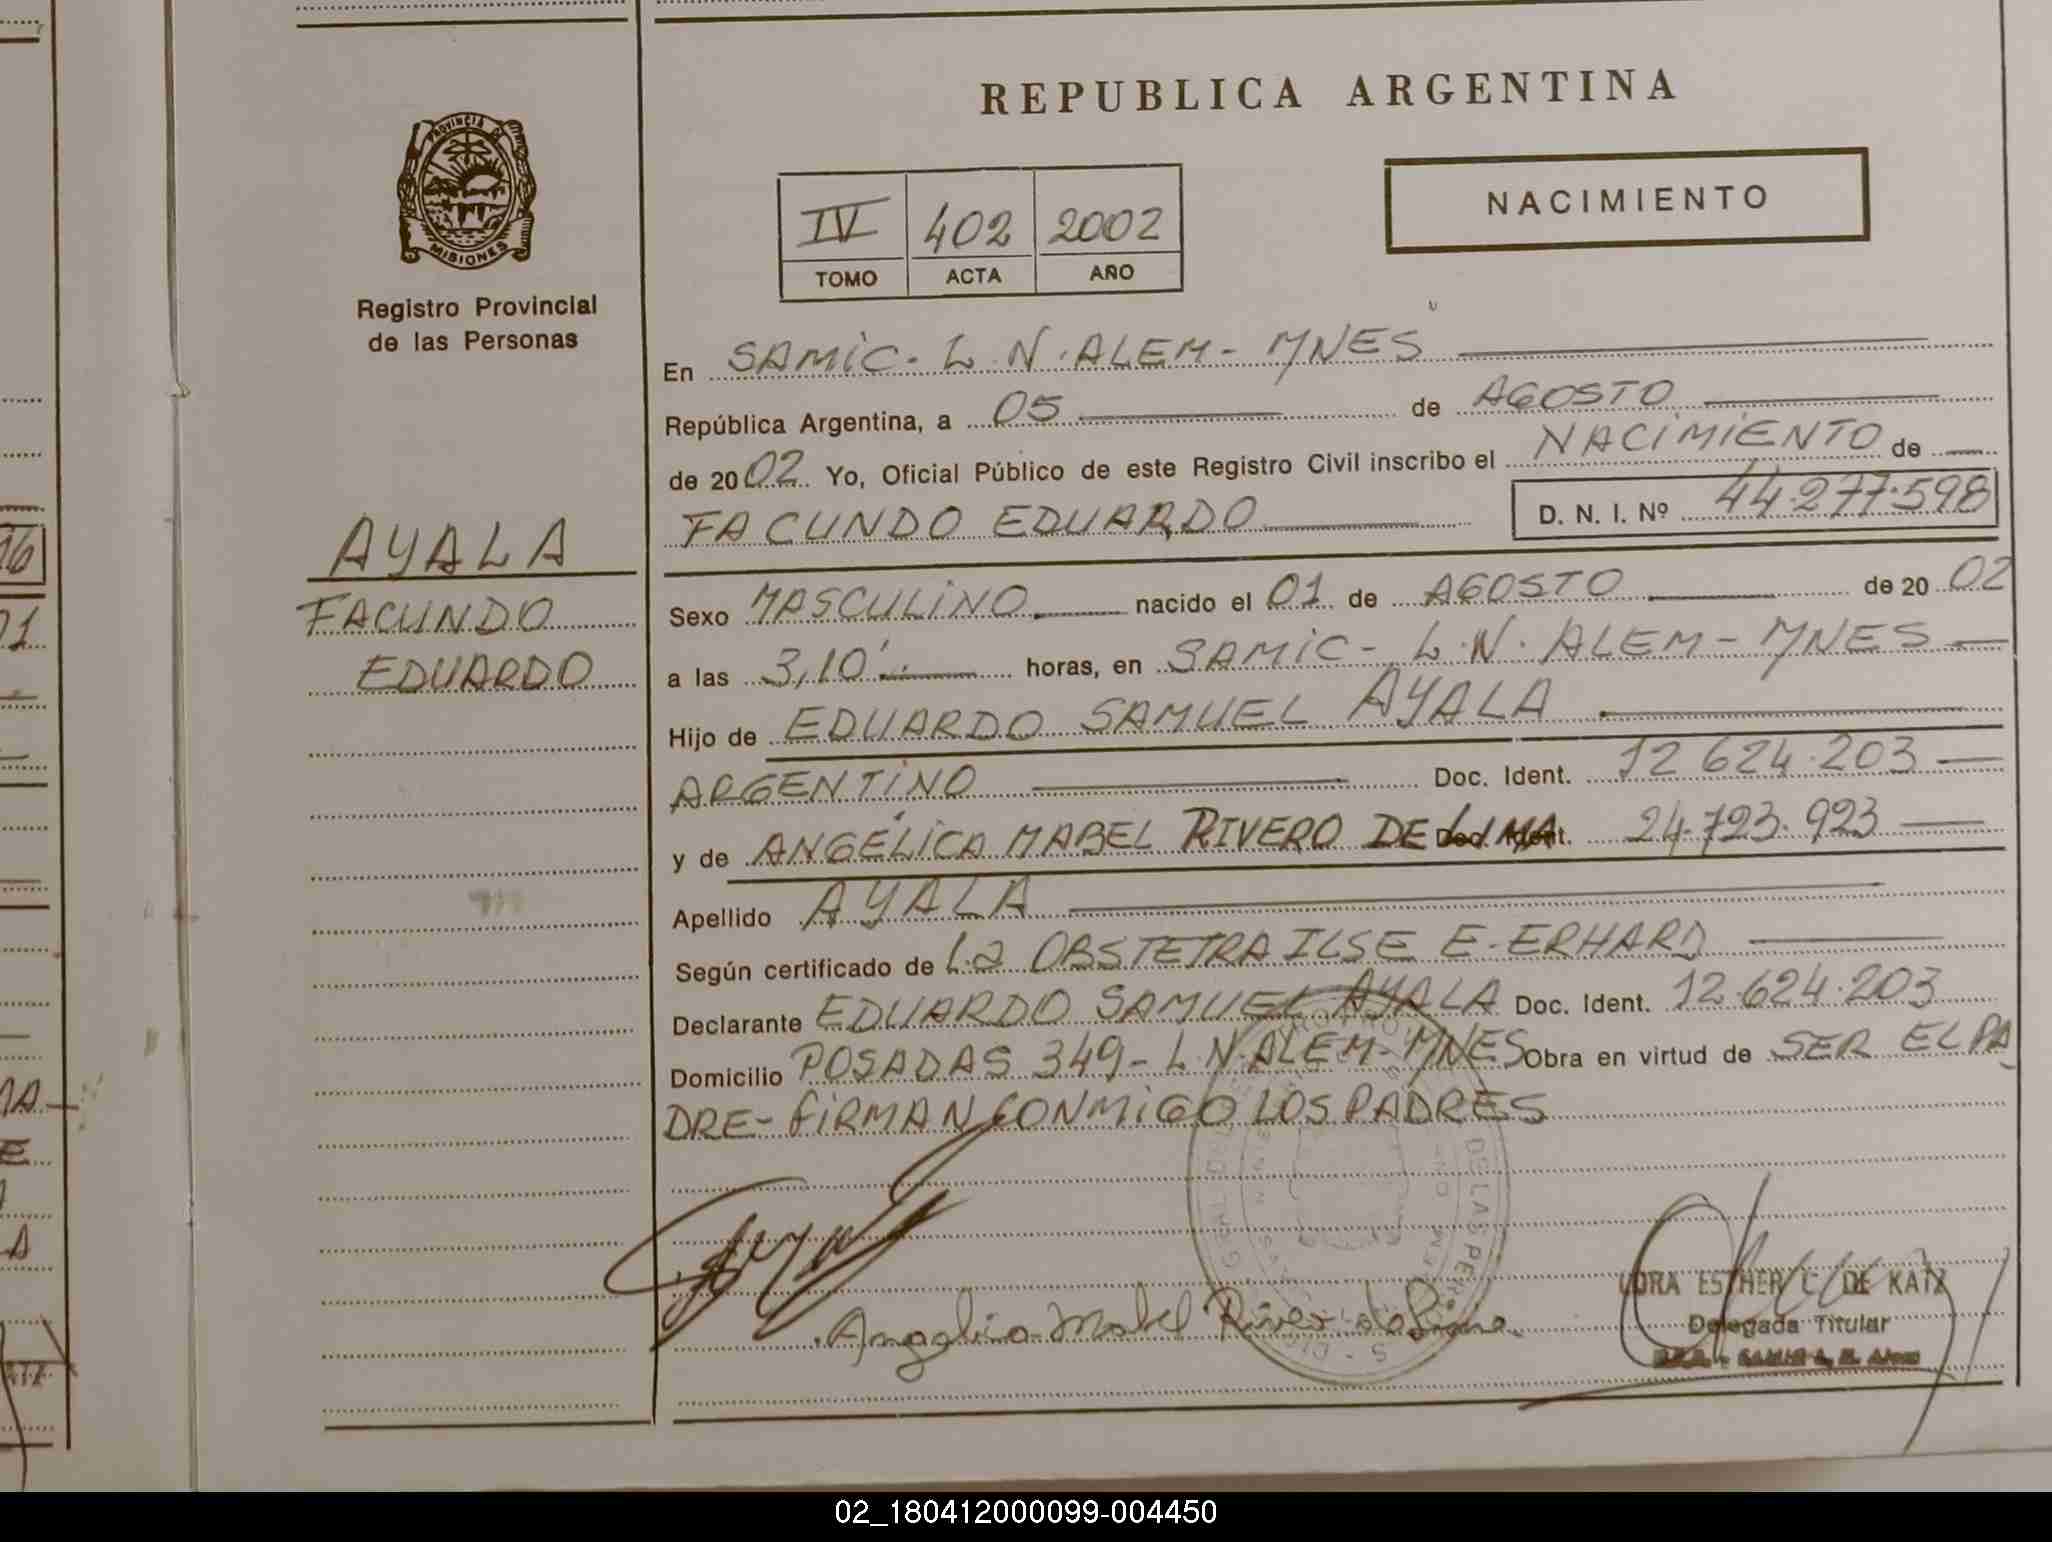 REPUBLICA ARGENTINA
PROVINCIA DE
MISIONES
Registro Provincial
de las Personas
IV 402 2002
TOMO ACTA AÑO
NACIMIENTO
En SAMIC- L.N.ALEM- MNES
República Argentina, a 05 de AGOSTO
de 2002 Yo, Oficial Público de este Registro Civil inscribo el NACIMIENTO de
FACUNDO EDUARDO D. N. I. Nº 44.277.598
AYALA
FACUNDO
EDUARDO
Sexo MASCULINO nacido el 01 de AGOSTO de 20 02
a las 3,10' horas, en SAMIC- L.N. ALEM- MNES
Hijo de EDUARDO SAMUEL AYALA
ARGENTINO Doc. Ident. 12 624.203
y de ANGÉLICA MABEL RIVERO DE LIMA Doc. Ident. 24.723.923
Apellido AYALA
Según certificado de La OBSTETRA ILSE E. ERHARD
Declarante EDUARDO SAMUEL AYALA Doc. Ident. 12.624.203
Domicilio POSADAS 349- L.N.ALEM- MNES Obra en virtud de SER EL PA
DRE- FIRMAN CONMIGO LOS PADRES
DE LAS PER
Angelica Mabel Rivero de Lima
ESTHER C. DE KATZ
Delegada Titular
02_180412000099-004450